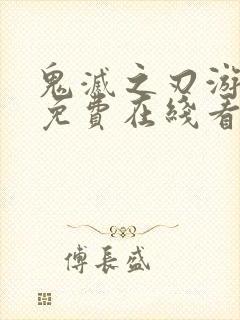 鬼滅之刃游
免費在綫看
傅長盛